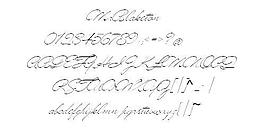 Mr Blaketon
0123456789 : ; = ? @
ABCDEFGHIJKLMNOPQ
RSTUVWXYZ[\]^_`
abcdefghijklmn opqrstuvwxyz{|}~